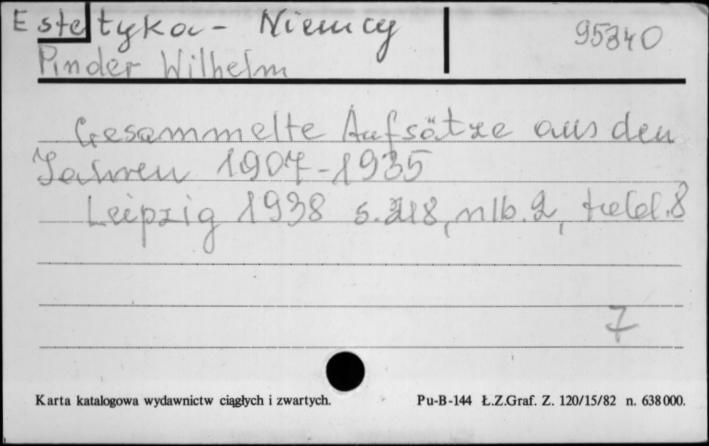 Estetyka - Niemcy
95340
Pinder Wilhelm
Gesammelte Aufsätze aus den
Jahren 1907-1935
Leipzig 1938 s. 218, nlb. 2, tabl. 8
7
Karta katalogowa wydawnictw ciągłych i zwartych. Pu-B-144 Ł.Z.Graf. Z. 120/15/82 n. 638 000.